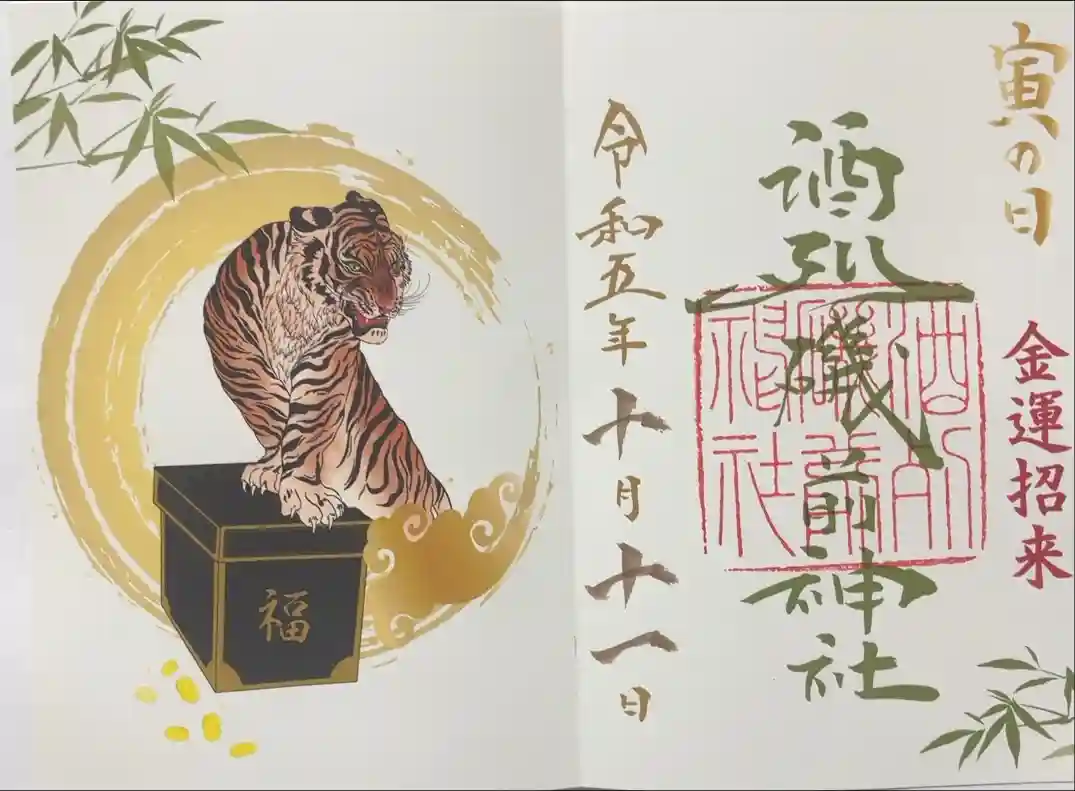 寅の日
金運招来
酒列磯前神社
酒列
磯前
神社
令和五年十月十一日
福